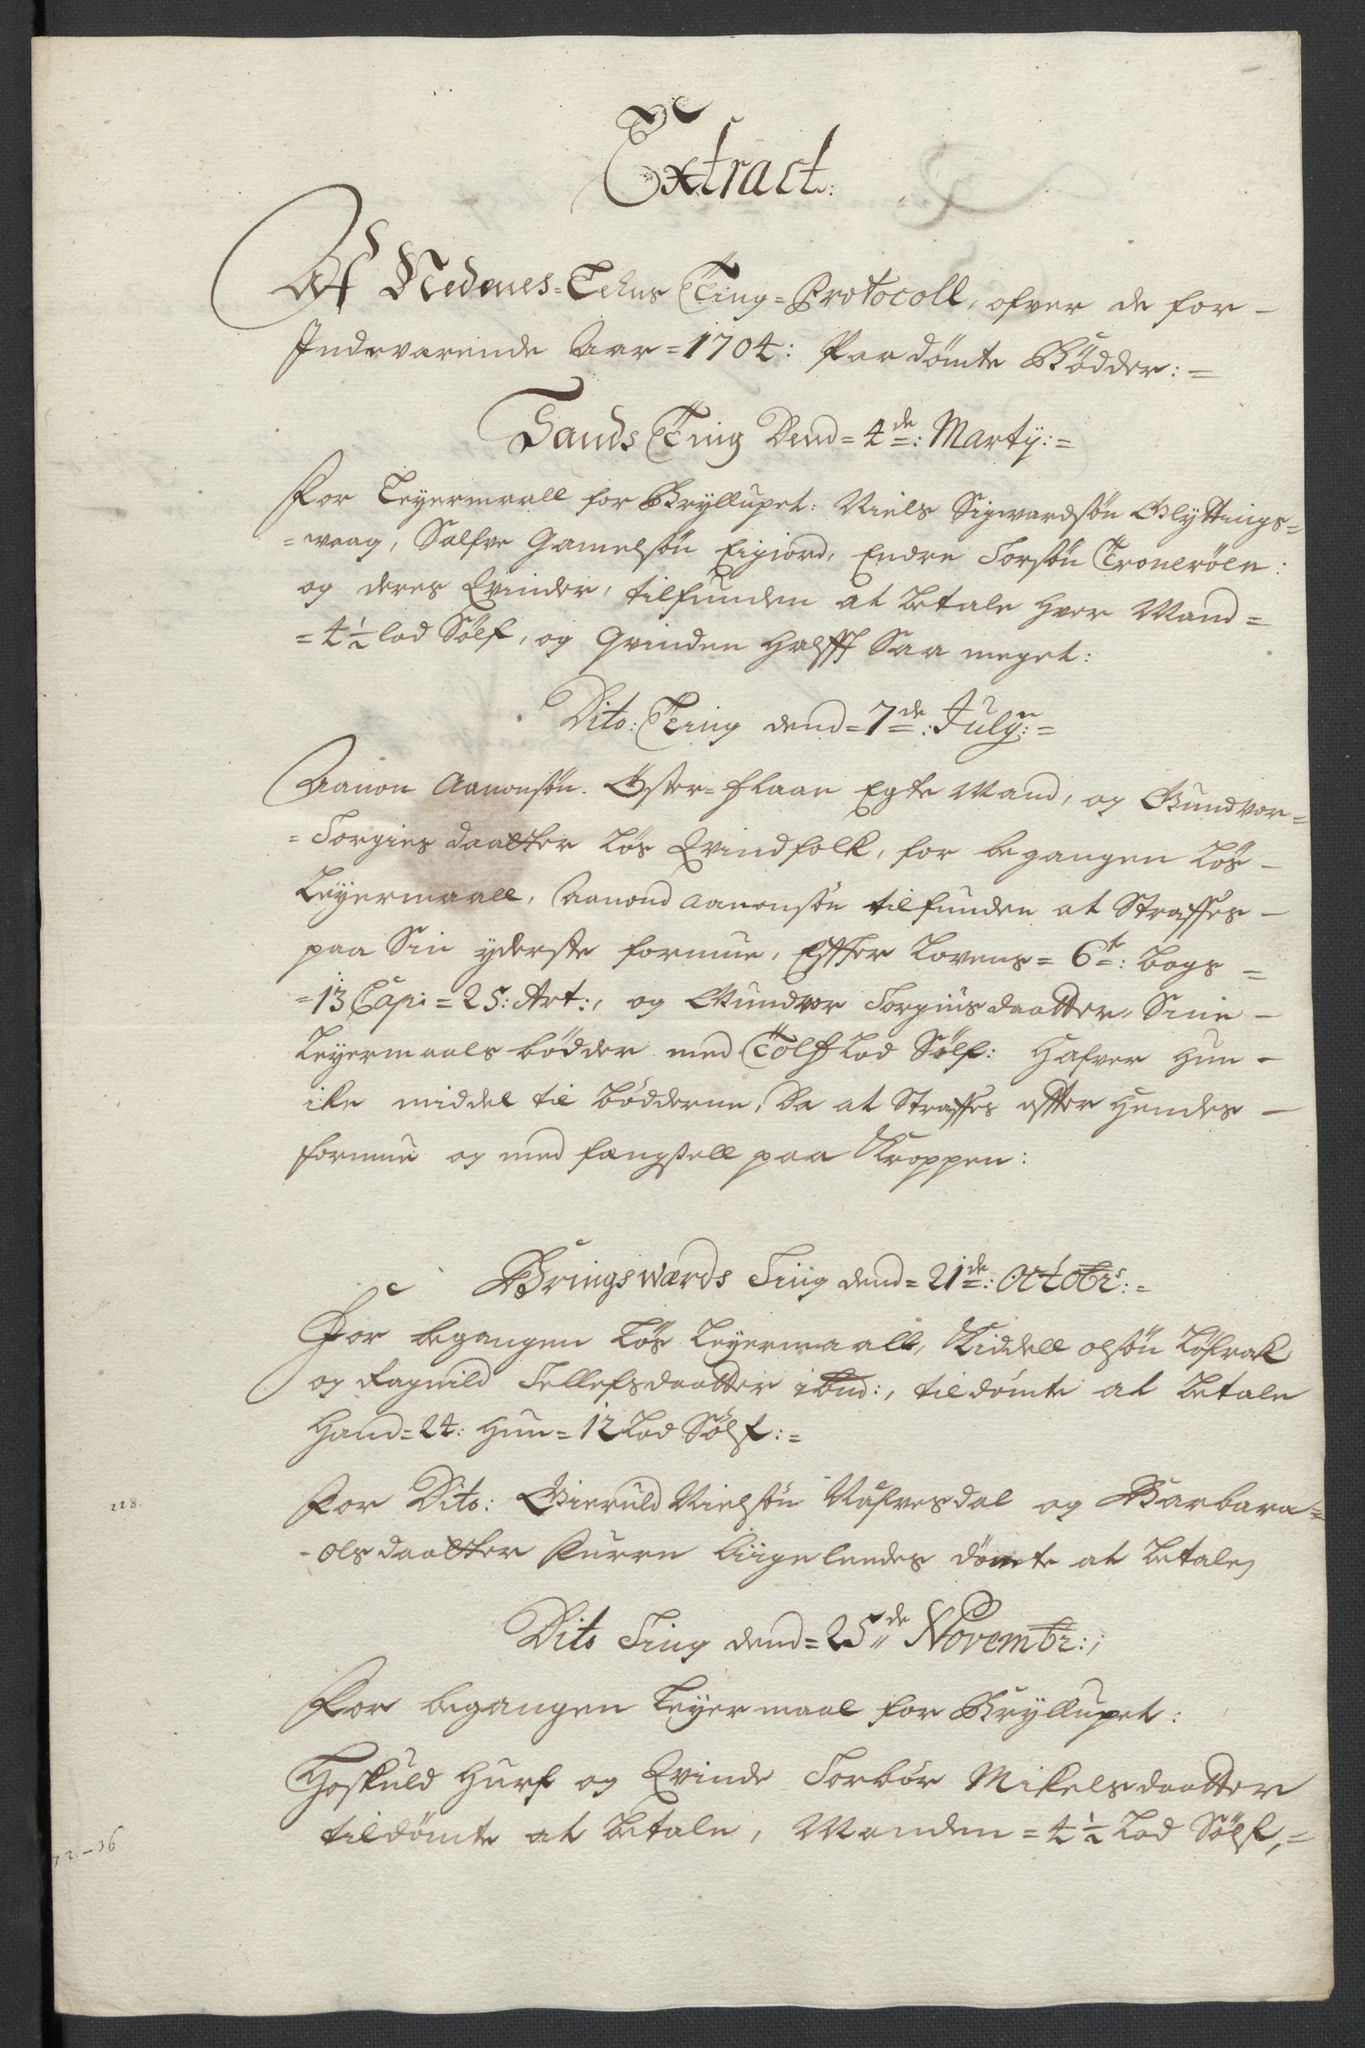 Extract:
Af Nedenes = Lehns Ting = Protocoll, ofver de for -
Inderværende Aar = 1704: Paadømte Bødder: =
Sands Ting Dend = 4de: Martij: =
For Leyermaall for Bryllupet: Niels Sigvardsøn Glyttings =
= waag, Salfve Gamelsøn Eigiord, Endre Torsøn Tronerøen:
og deres Qvinder, tilfunden at betale hver Mand =
= 4½ lod Sølf, og Qvinden Halfft Saa meget:
Dito: Ting dend = 7de: July: =
Aanon Aanonsøn Øster = Flaae Egte Mand, og Gundvor =
= Torgies daatter Løs Qvindfolk, for begangen Løs -
Leyermaall, Aanond Aanonsøn tilfunden at Straffes -
paa Sin yderste formue, Effter Lovens = 6te: bogs =
= 13 Capi = 25: Art:, og Gundvor Torgiusdaatter Sine -
Leyermaals bødder med Tolf Lod Sølf: Hafver Hun -
iche middel til bødderne, Da at Straffes efter Hendes -
formue og med fængsell paa Kroppen:
Bringsværds Ting dend = 21de: Octobr: =
For begangen Løs Leyermaall, Kiddell Olsøn Løfrak
og Ragnild Tellefsdaatter ibnd:, tildømte at betale
Hand = 24: Hun = 12 Lod Sølf: =
228.
For Dito: Gieruld Nielsøn Uafvesdal og Barbara =
- Olsdaatter Furre Liigeleedes dømte at betale,
Dito Ting dend = 25de Novembr:,
For begangen Leyermaal for Bryllupet:
Hoskuld Hurf og Qvinde Torbør Mikelsdaatter
tildømte at betale, Manden = 4½ Lod Sølf, =
72 - 36